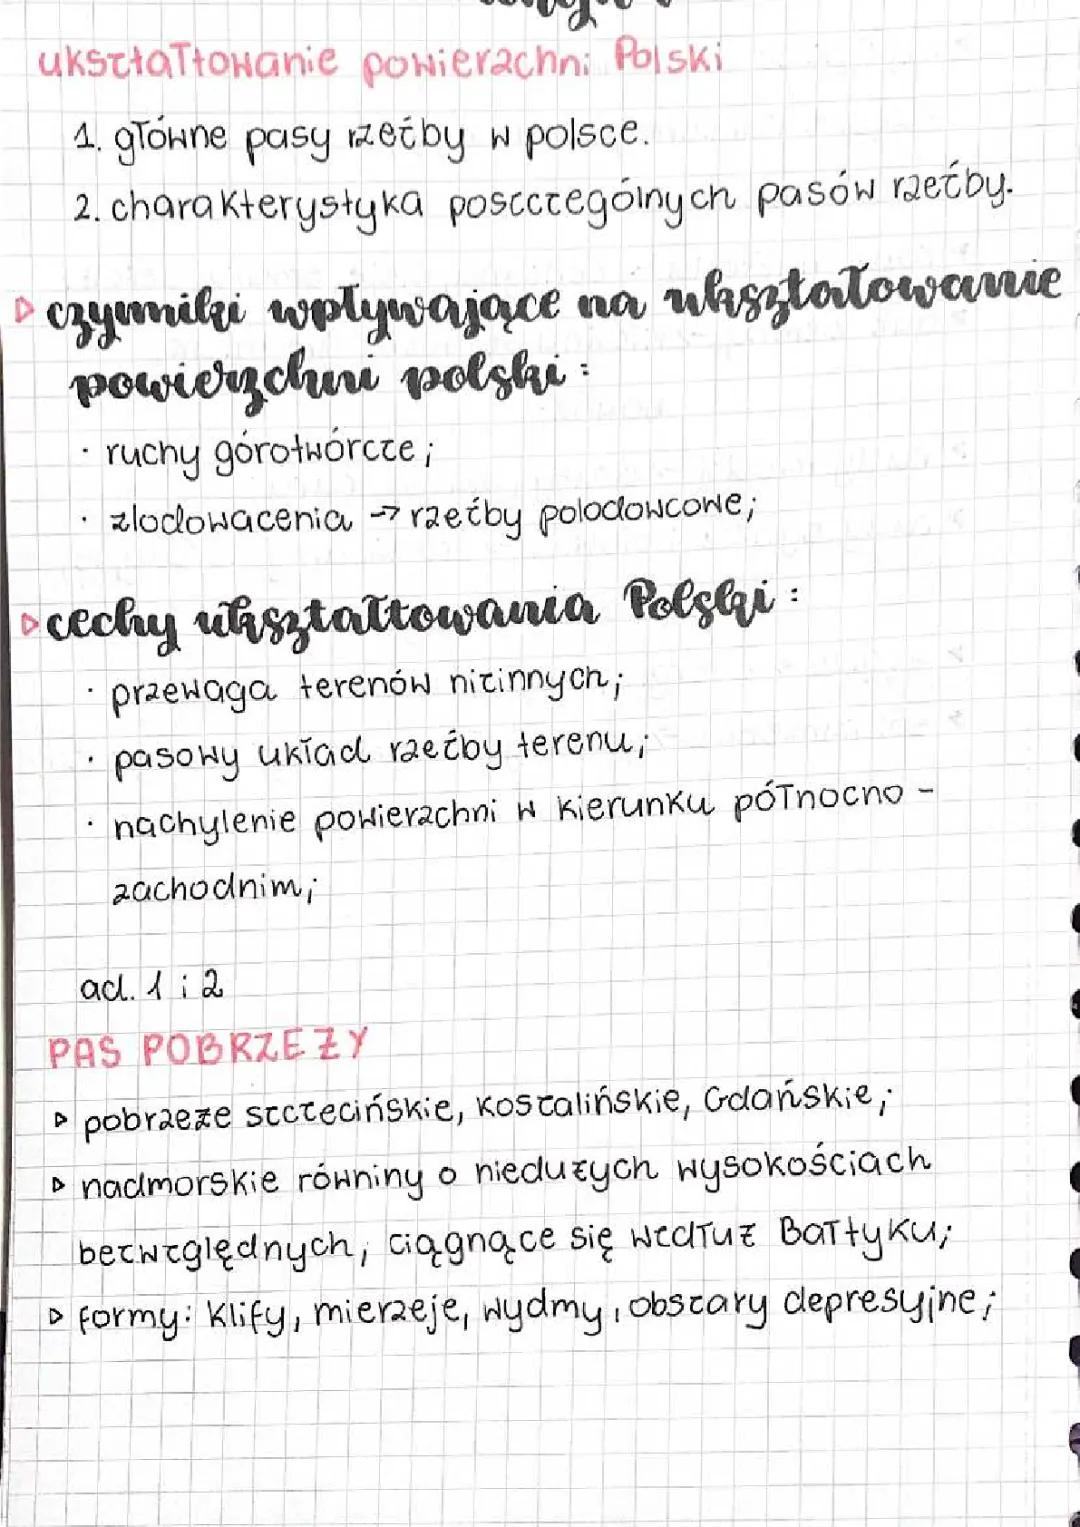 ukształtowanie powierzchni Polski
1. główne pasy rzeźby w polsce.
2. charakterystyka poszczególnych pasów rzeźby.
▷ czynniki wpływające na ukształtowanie
powierzchni polski:
· ruchy górotwórcze;
· zlodowacenia → rzeźby polodowcowe;
▷ cechy ukształtowania Polski:
· przewaga terenów nizinnych;
· pasowy układ rzeźby terenu;
· nachylenie powierzchni w kierunku północno-
zachodnim;
ad. 1 i 2
PAS POBRZEŻY
▷ pobrzeże szczecińskie, koszalińskie, Gdańskie;
▷ nadmorskie równiny o niedużych wysokościach
bezwzględnych, ciągnące się wzdłuż Bałtyku;
▷ formy: klify, mierzeje, wydmy, obszary depresyjne;